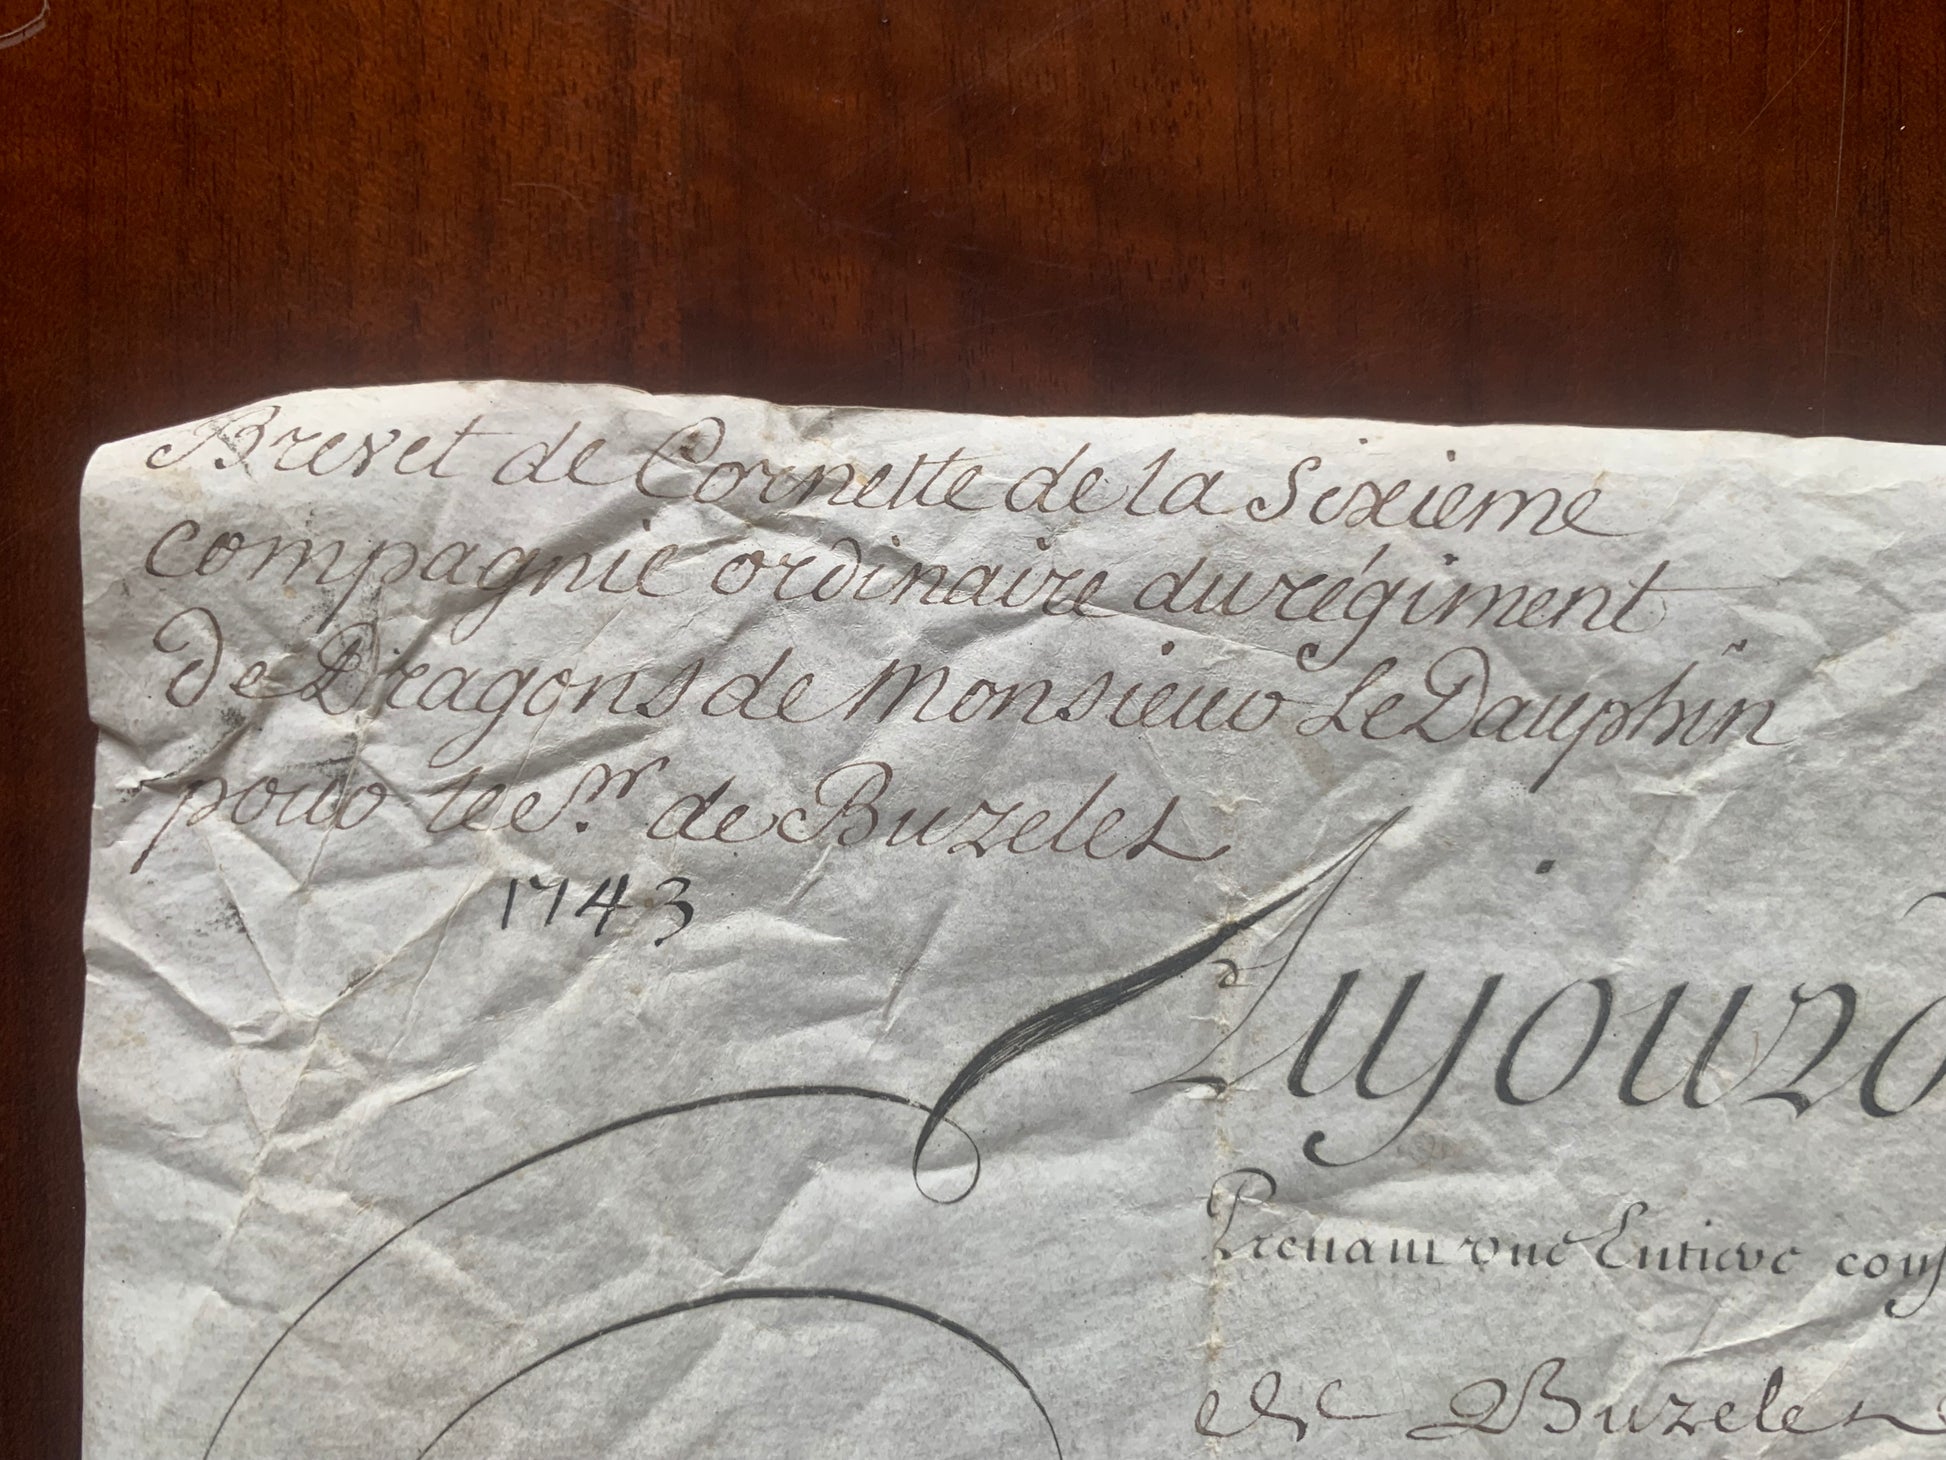 Brevet de Cornette de la Sixieme
compagnie ordinaire du régiment
de Dragons de Monsieur Le Dauphin
pour le Sr. de Buzelet
1743
Aujourd
Prenant une Entiere conf
de Buzelet